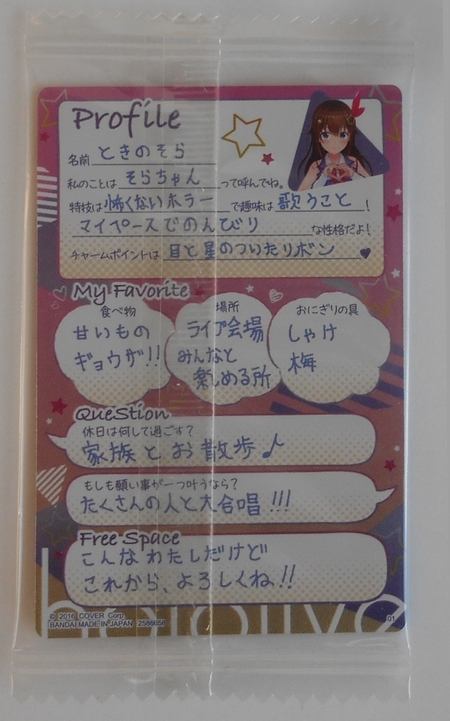 Profile
名前 ときのそら
私のことは そらちゃん って呼んでね。
特技は 怖くないホラー で趣味は 歌うこと !
マイペースでのんびり な性格だよ!
チャームポイントは 目と星のついたリボン
My Favorite
食べ物
甘いもの
ギョウザ!!
場所
ライブ会場
みんなと
楽しめる所
おにぎりの具
しゃけ
梅
QueStion
休日は何して過ごす?
家族とお散歩♪
もしも願い事が一つ叶うなら?
たくさんの人と大合唱!!!
Free Space
こんなわたしだけど
これから、よろしくね!!
hololive
© 2016 COVER Corp.
BANDAI MADE IN JAPAN 2586656
01